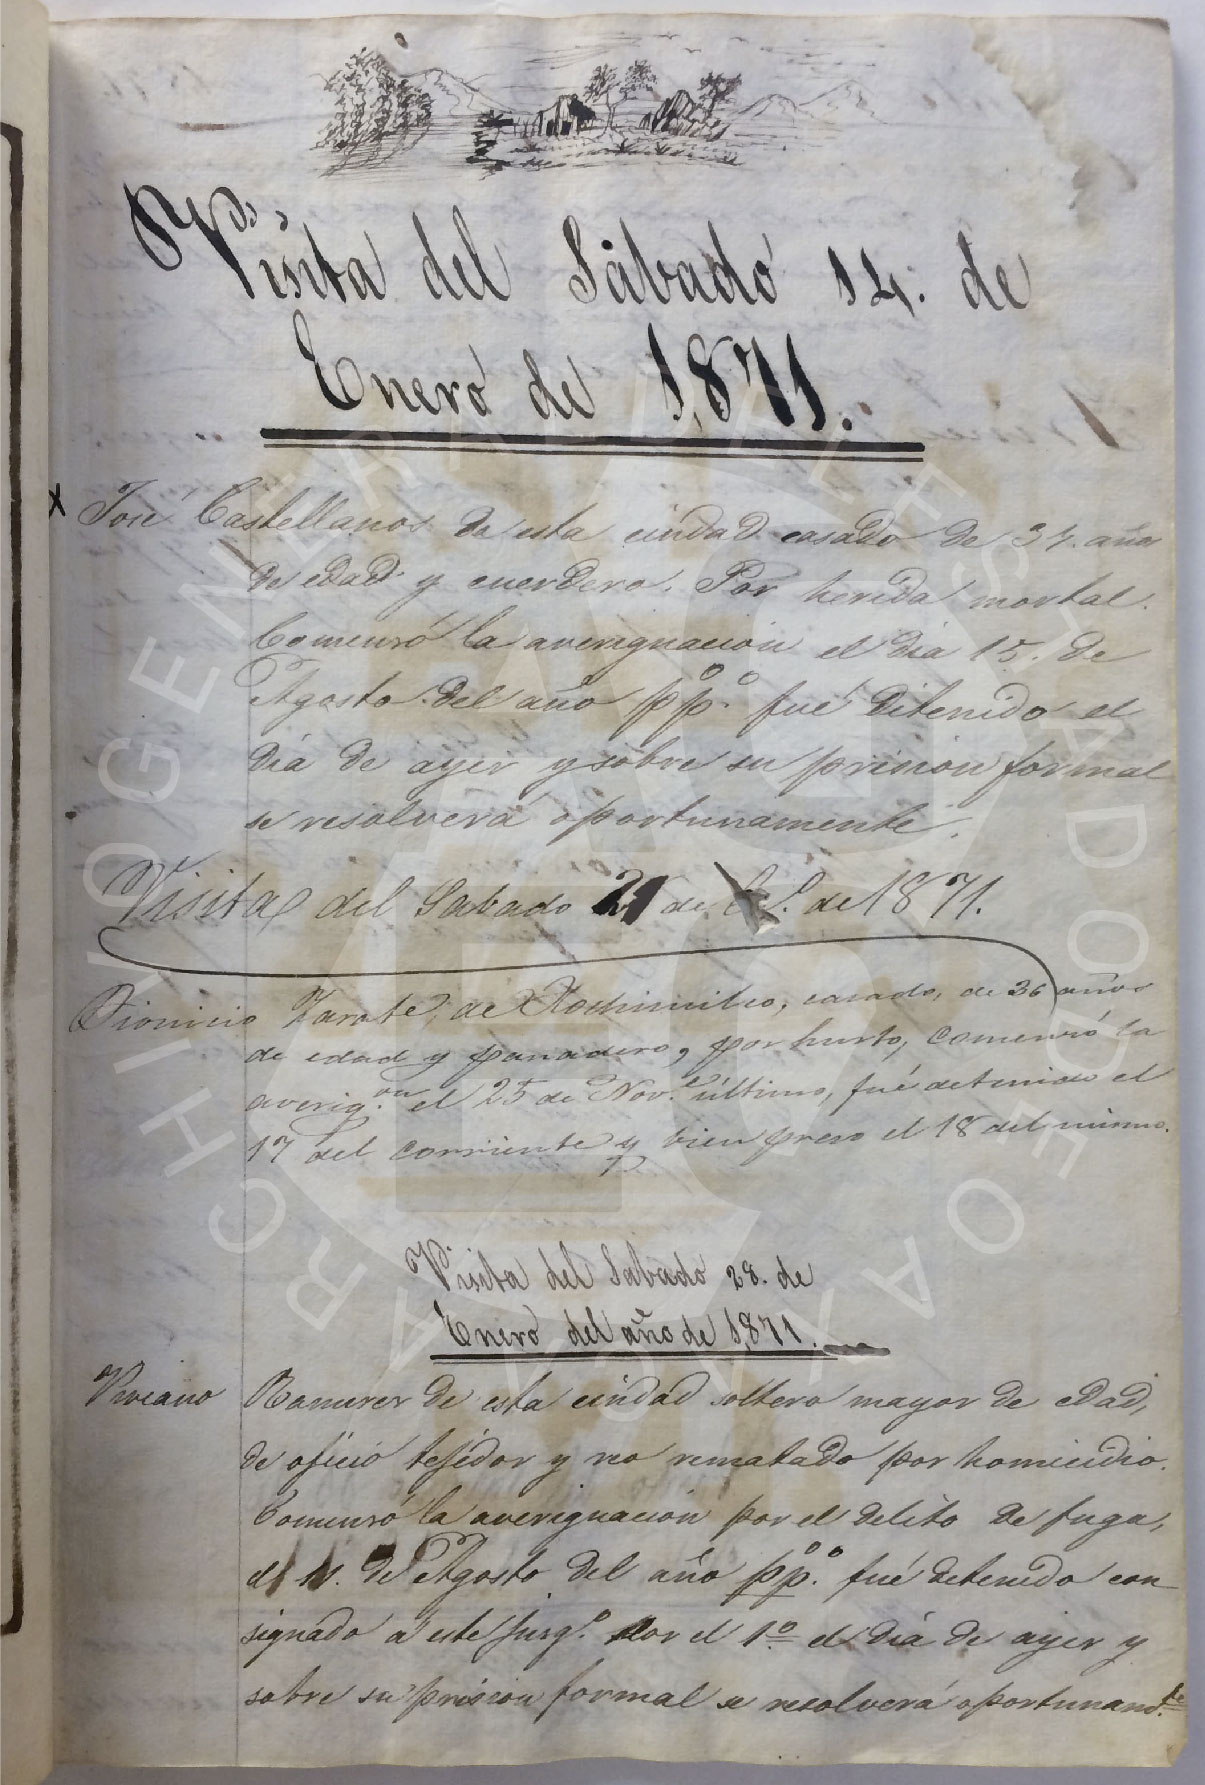 Visita del Sábado 14. de
Enero de 1,871.
x José Castellanos de esta ciudad casado de 34. años
de edad y cuerdero. Por herida mortal.
Comensó la averiguacion el dia 15. de
Agosto del año pp.º fué ditenido el
dia de ayer y sobre su prision formal
se resolverá oportunamente.
Visita del Sabado 21 de E.º de 1871.
Dionicio Zarate, de Xochimilco, casado, de 36 años
de edad y panadero, por hurto, comensó la
averig.on el 25 de Nov.e último, fué detenido el
17 del corriente y bien preso el 18 del mismo.
Visita del Sabado 28. de
Enero del año de 1,871.
Viviano Ramires de esta ciudad soltero mayor de edad,
de oficio tejedor y reo rematado por homicidio.
Comensó la averiguacion por el delito de fuga,
el 11. de Agosto del año pp.º fué detenido con
signado á este juzg.º por el 1.º el dia de ayer y
sobre su prision formal se resolverá oportunam.te
ARCHIVO GENERAL DEL ESTADO DE OAXACA
AGEO